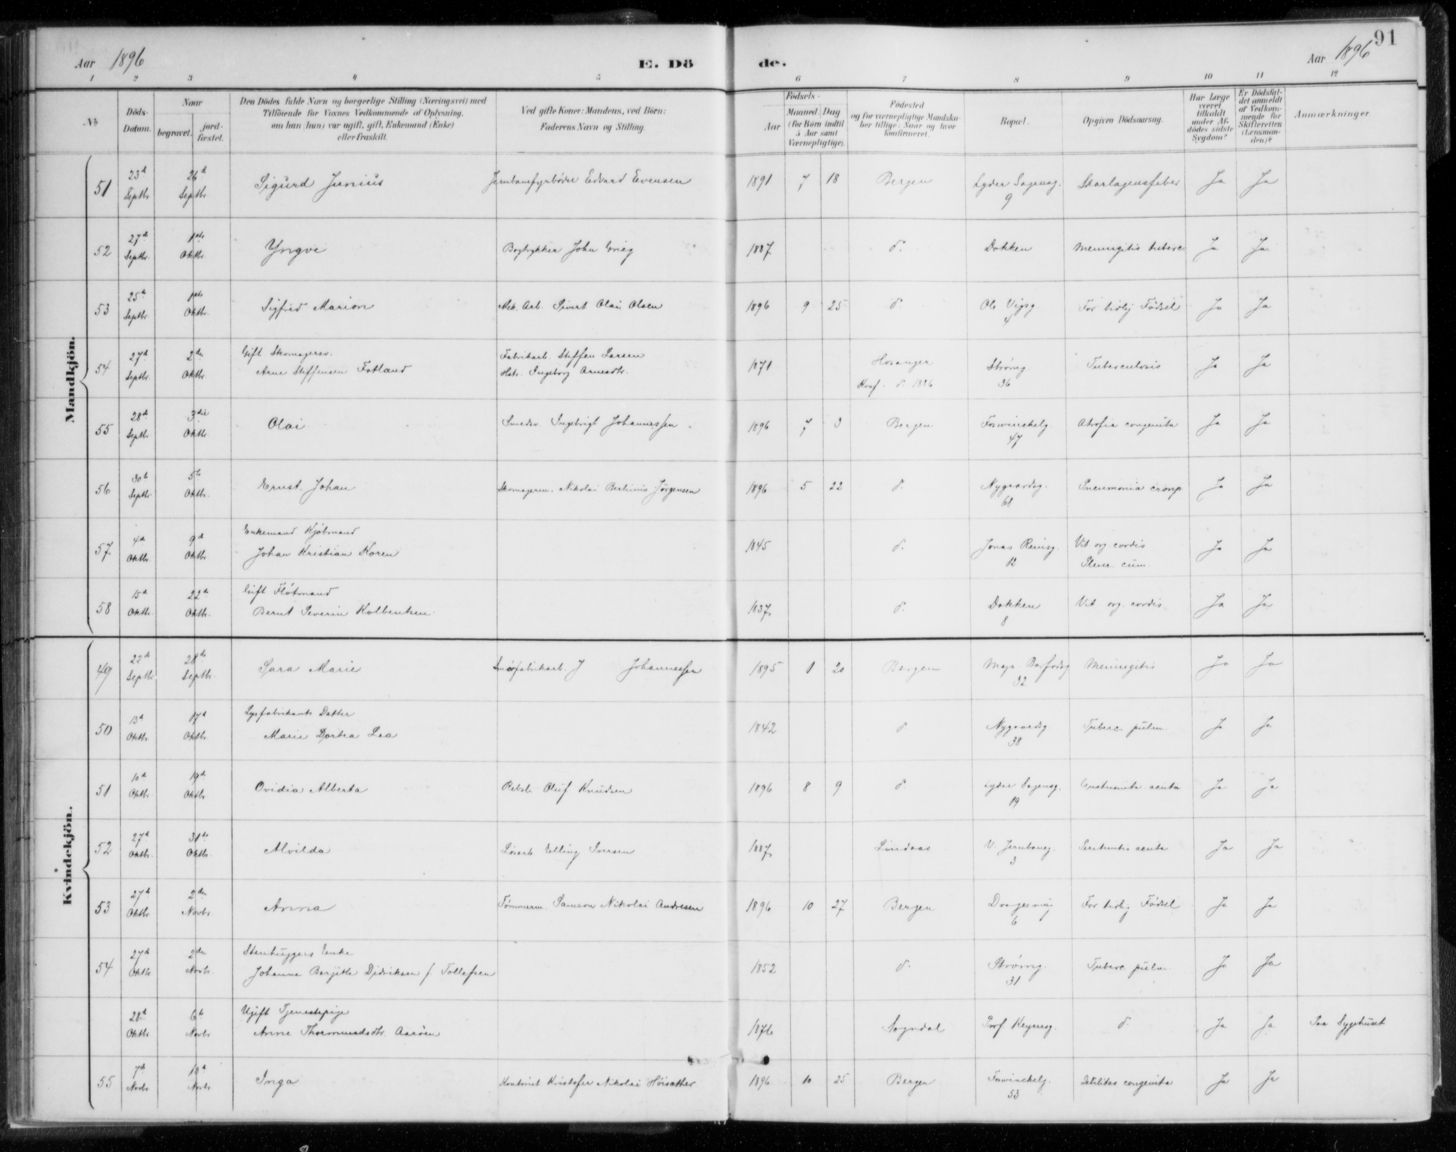 Aar 1896 E. Dö
de. Aar 1896 91
1 2 3 4 5 6 7 8 9 10 11 12
No
Döds-Datum.
Naar
begravet.
jord-fæstet.
Den Dödes fulde Navn og borgerlige Stilling (Næringsvei) med
Tilföiende for Voxnes Vedkommende af Oplysning,
om han (hun) var ugift, gift, Enkemand (Enke)
eller fraskilt.
Ved gifte Koner: Mandens, ved Börn:
Faderens Navn og Stilling.
Födsels-
Aar
Maaned Dag
(for Börn indtil
5 Aar samt
Værnepligtige).
Födested
og for værnepligtige Mandskaber tillige: Naar og hvor
konfirmeret.
Bopæl.
Opgiven Dödsaarsag.
Har Læge været tilkaldt under Afdödes sidste Sygdom?
Er Dödsfaldet anmeldt af Vedkommende for Skifteretten (Lensmanden)?
Anmærkninger
Mandkjön.
51 23d Septbr 26d Septbr Sigurd Junius Jernbanefyrbøder Edvard Evensen 1891 7 18 Bergen Lyder Sagensg. 9 Skarlagensfeber Ja Ja
52 27d Septbr 1ste Oktbr Yngve Bogtrykker John Grieg 1887 d. Dokken Meningitis Ja Ja
53 25d Septbr 1ste Oktbr Sigfred Marion Sivert Olai Olsen 1896 9 25 d Ole Vigsg 4 For tidlig Födsel Ja Ja
54 27d Septbr 2den Oktbr Gift Skomagersv.
Arne Steffensen Fotland Fabrikarb. Steffen Larsen
Hstr. Ingeborg Arnesdtr. 1871 Hosanger
Konf. d. 1886 Strömg 36 Tuberculosis Ja Ja
55 28d Septbr 3die Oktbr Olai Smedsv. Ingebrigt Johannessen 1896 7 3 Bergen Fosswinckelsg. 47 Atrofia congenita Ja Ja
56 30d Septbr 5te Oktbr. Ernst Johan Skomagerm. Nikolai Berlinius Jørgensen 1896 5 22 d Nygaardsg. 61 Pneumonia croup Ja Ja
57 4d Oktbr 9d Oktbr Enkemand Kjöbmand
Johan Kristian Koren 1845 d. Jonas Reinsg. 12 Vit org cordis Ja Ja
58 15d Oktbr. 22d Oktbr. Gift Flötmand
Bernt Severin Kolbentsen 1837 d. Dokken 8 Vit org. cordis. Ja Ja
Kvindekjön.
49 22d Septbr 28de Septbr Sara Marie J Johannessen 1895 1 20 Bergen 32 Meningitis Ja Ja
50 13d Oktbr. 17d Oktbr. Datter
Marie Dortea Lea 1842 d Nygaardsg 38 Tuberc. pulm. Ja Ja
51 10d Oktbr. 19d Oktbr Ovidia Alberta Oluf Knudsen 1896 8 9 d Lyder Sagensg. 19 acuta Ja Ja
52 27d Oktbr. 31de Oktbr. Alvilda Elling Iversen 1887 Lindaas V. Jernbaneg. 3 acuta Ja Ja
53 27d Oktbr 2den Novbr Anna Tömmerm. Samson Nikolai Andresen 1896 10 27 Bergen 6 For tidlig Födsel Ja Ja
54 27d Oktbr 2den Novbr. Stenhuggers Enke
Johanne Bergitte Didriksen f Tollefsen 1852 d. Strömg. 31 Tuberc pulm Ja Ja
28d Oktbr 6te Novbr. Ugift Tjenestepige
Anne Thormundsdtr. 1876 Sogndal Prof Keysersg. d. Ja Ja Paa Sygehuset
55 7d Novbr Novbr Inga Kristofer Nikolai Höisæther 1896 10 25 Bergen Fosswinckelsg. 53 Debilitas congenita Ja Ja